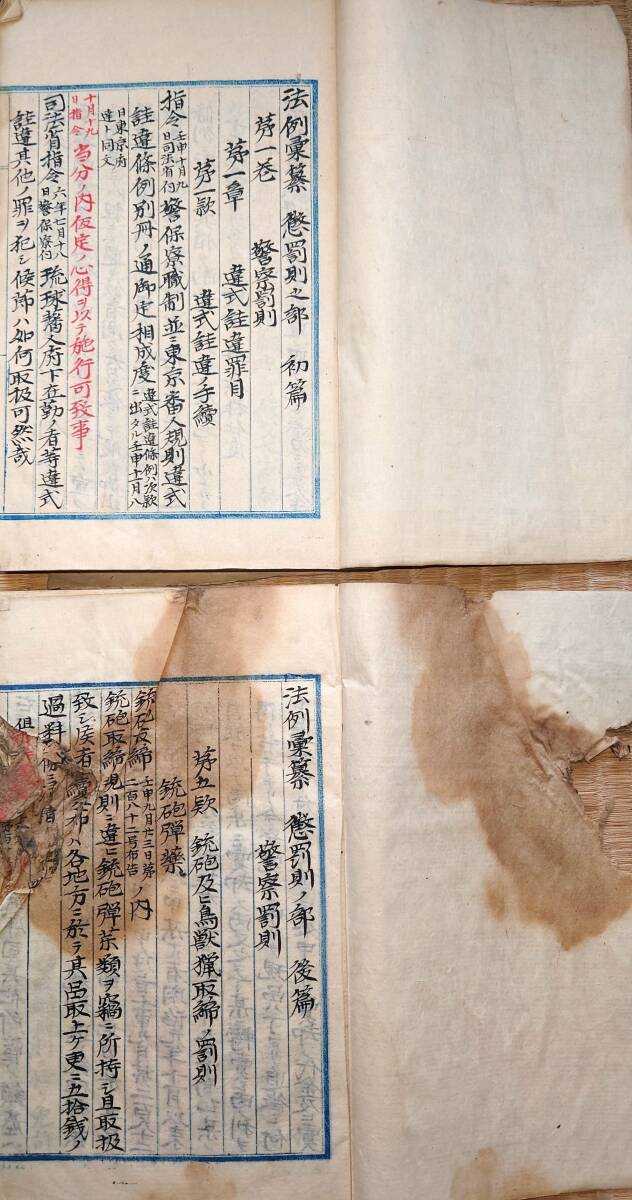 法例彙纂 懲罰則之部 初篇
第一巻 警察罰則
第一章 違式詿違罪目
第一款 違式詿違ノ手續
指令 壬申十月九日司法省伺 警保寮職制並ニ東京番人規則違式
詿違條例別冊ノ通御定相成度 違式詿違條例ハ次款ニ出タル壬申十一月八
日東京府達ト同文
十月十九日指令 当分ノ内仮定ノ心得ヲ以テ施行可致事
司法省指令 六年七月十八日警保寮伺 琉球藩人府下在勤ノ者等違式
詿違其他ノ罪ヲ犯シ候節ハ如何取扱可然哉
法例彙纂 懲罰則ノ部 後篇
警察罰則
第五款 銃砲及ヒ鳥獣猟取締ノ罰則
銃砲弾藥
銃砲取締 壬申九月廿三日第二百八十二号布告 ノ内
銃砲取締規則ニ違ヒ銃砲弾藥類ヲ竊ニ所持シ且取扱
致シ候者 ハ各地方ニ於テ其品取上ケ更ニ五拾銭ノ
過料
但